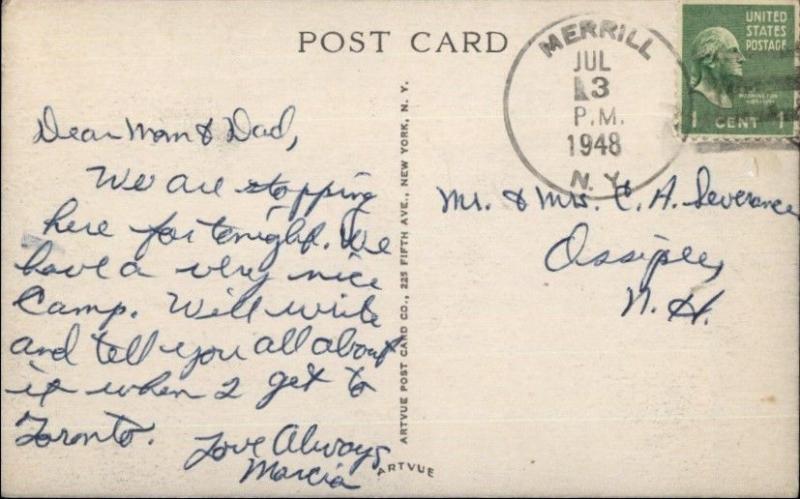 POST CARD
MERRILL
JUL
13
P.M.
1948
N.Y.
UNITED
STATES
POSTAGE
WASHINGTON
1 CENT 1
Dear Mom & Dad,
We are stopping
here for tonight. We
have a very nice
Camp. Will write
and tell you all about
it when I get to
Toronto.
Love Always
Marcia
Mr. & Mrs. C. A. Severance
Ossipee,
N. H.
ARTVUE POST CARD CO., 225 FIFTH AVE., NEW YORK, N. Y.
ARTVUE